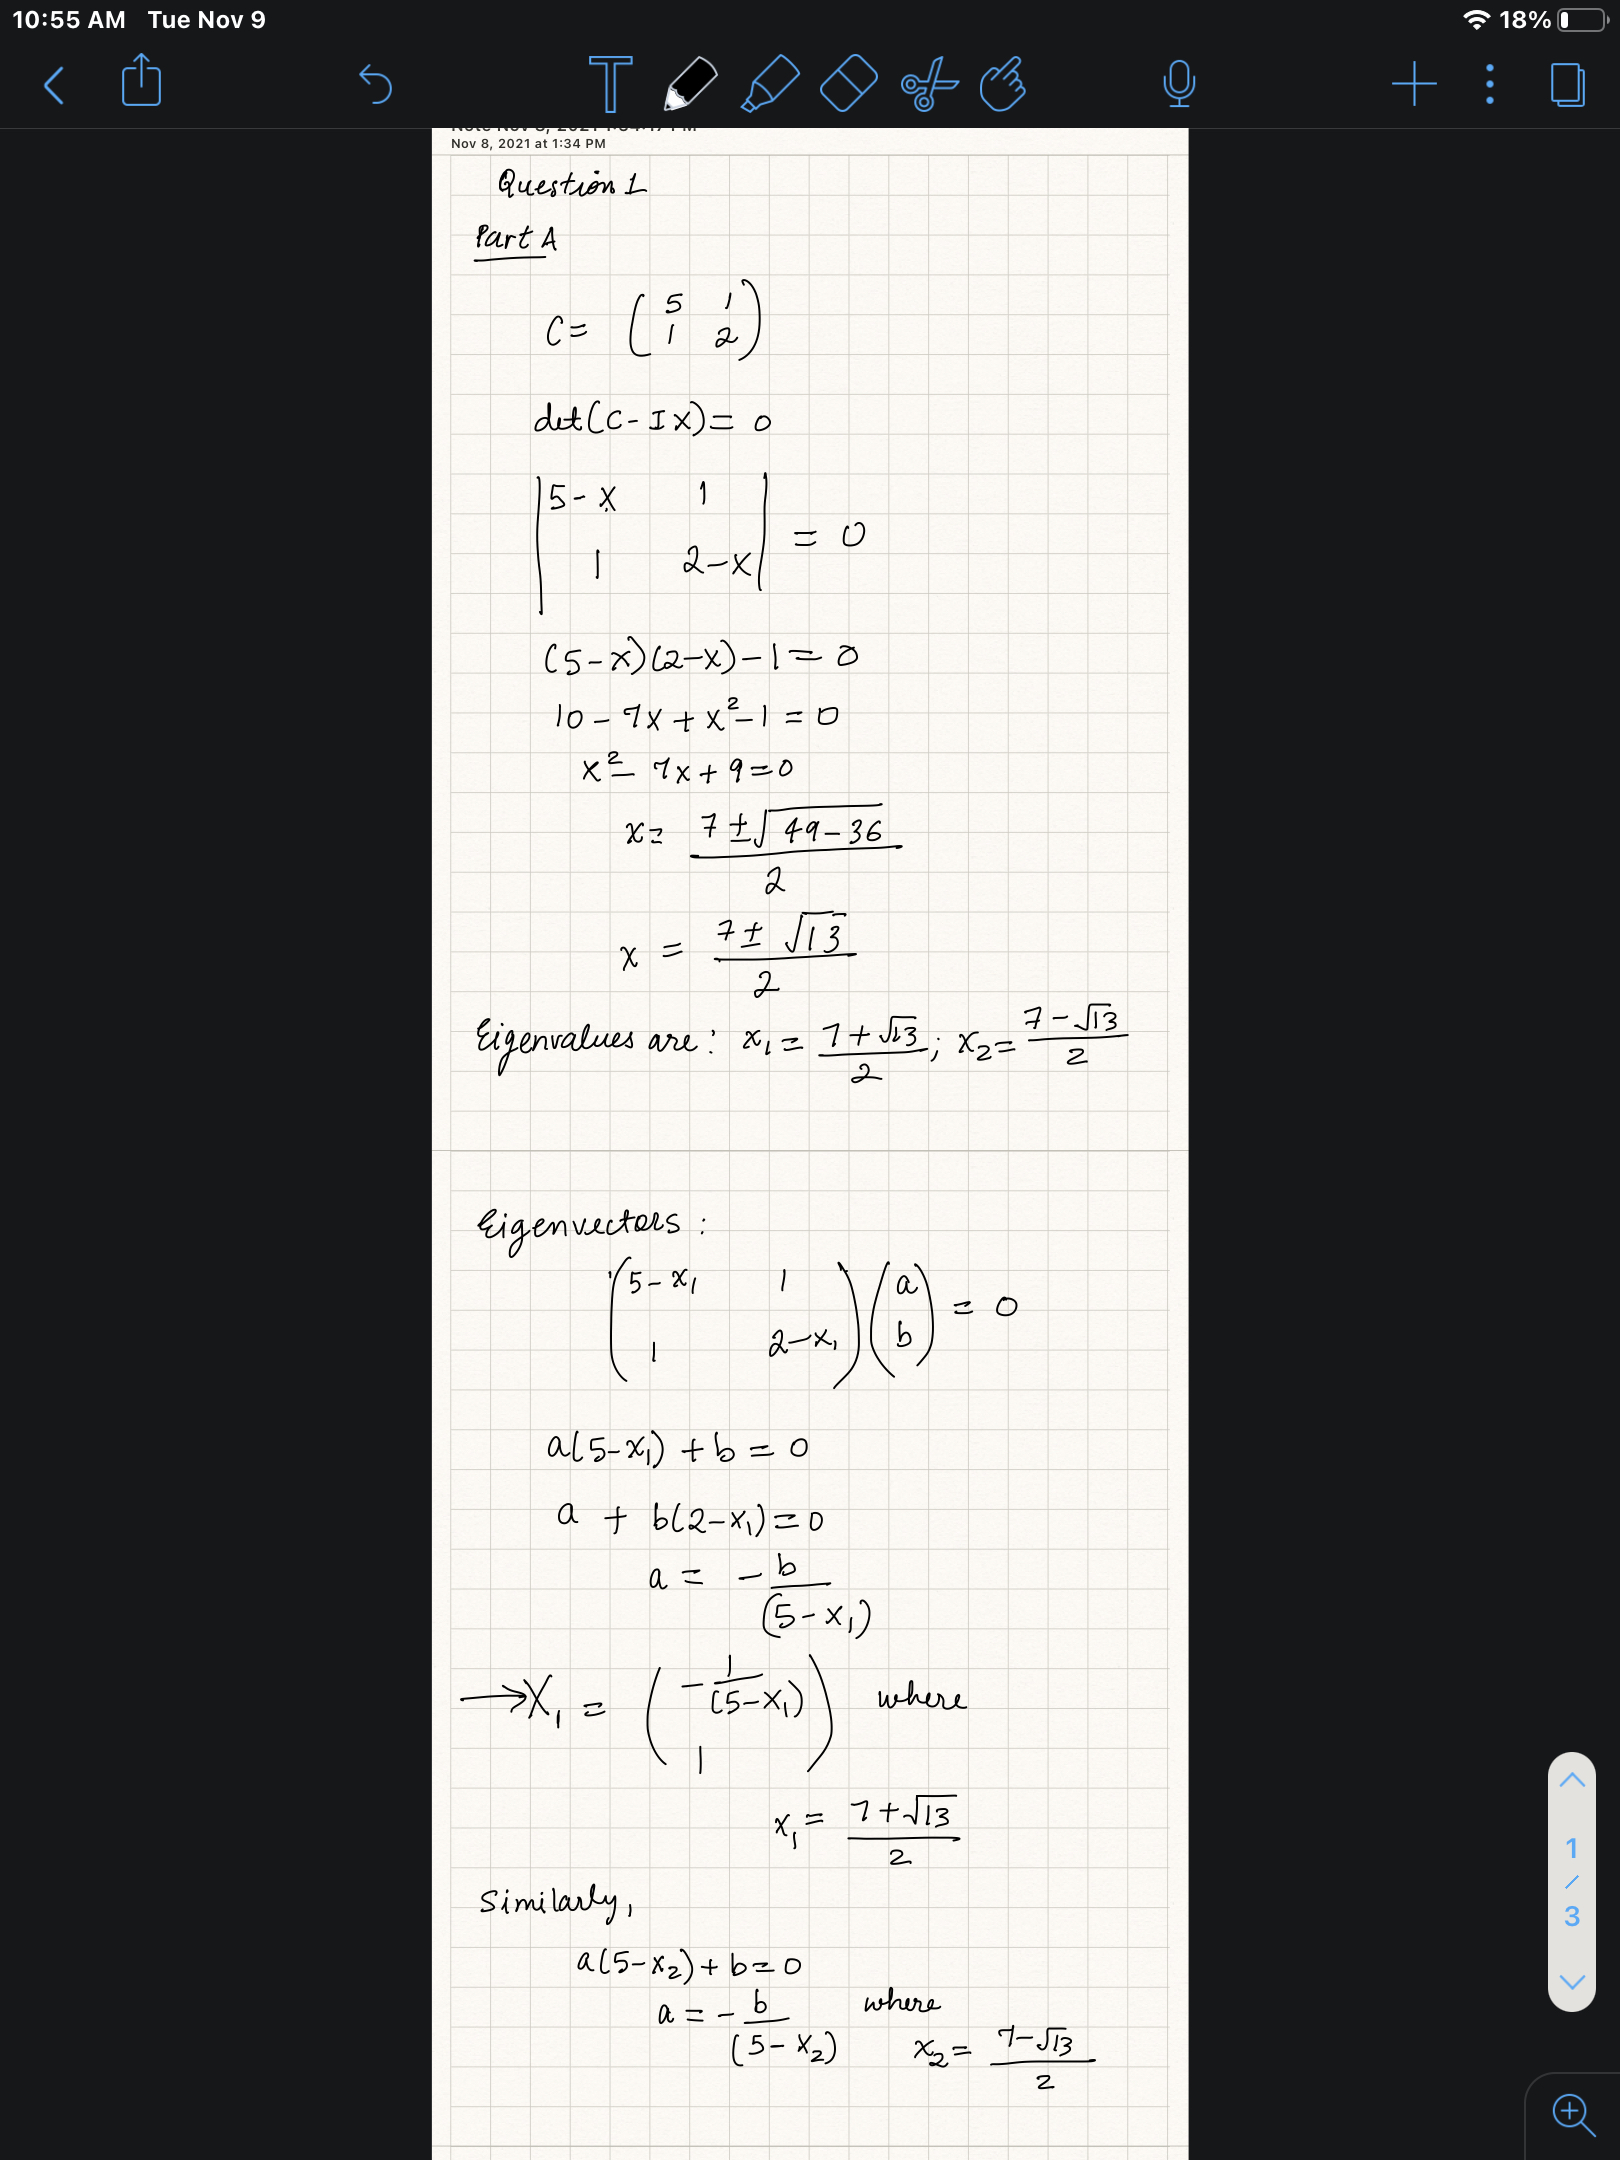 10:55 AM Tue Nov 9 18%
Nov 8, 2021 at 1:34 PM
Question 1
Part A
C = ( 5 1
1 2 )
det(C - I x) = 0
| 5 - x 1 |
| 1 2 - x | = 0
(5 - x)(2 - x) - 1 = 0
10 - 7x + x² - 1 = 0
x² - 7x + 9 = 0
x = (7 ± √(49 - 36)) / 2
x = (7 ± √13) / 2
Eigenvalues are : x₁ = (7 + √13) / 2 ; x₂ = (7 - √13) / 2
Eigenvectors :
( 5 - x₁ 1 ) ( a )
( 1 2 - x₁ ) ( b ) = 0
a(5 - x₁) + b = 0
a + b(2 - x₁) = 0
a = - b / (5 - x₁)
→ X₁ = ( - 1 / (5 - x₁) ) where
( 1 )
x₁ = (7 + √13) / 2
Similarly,
a(5 - x₂) + b = 0
a = - b / (5 - x₂) where
x₂ = (7 - √13) / 2
1
/
3